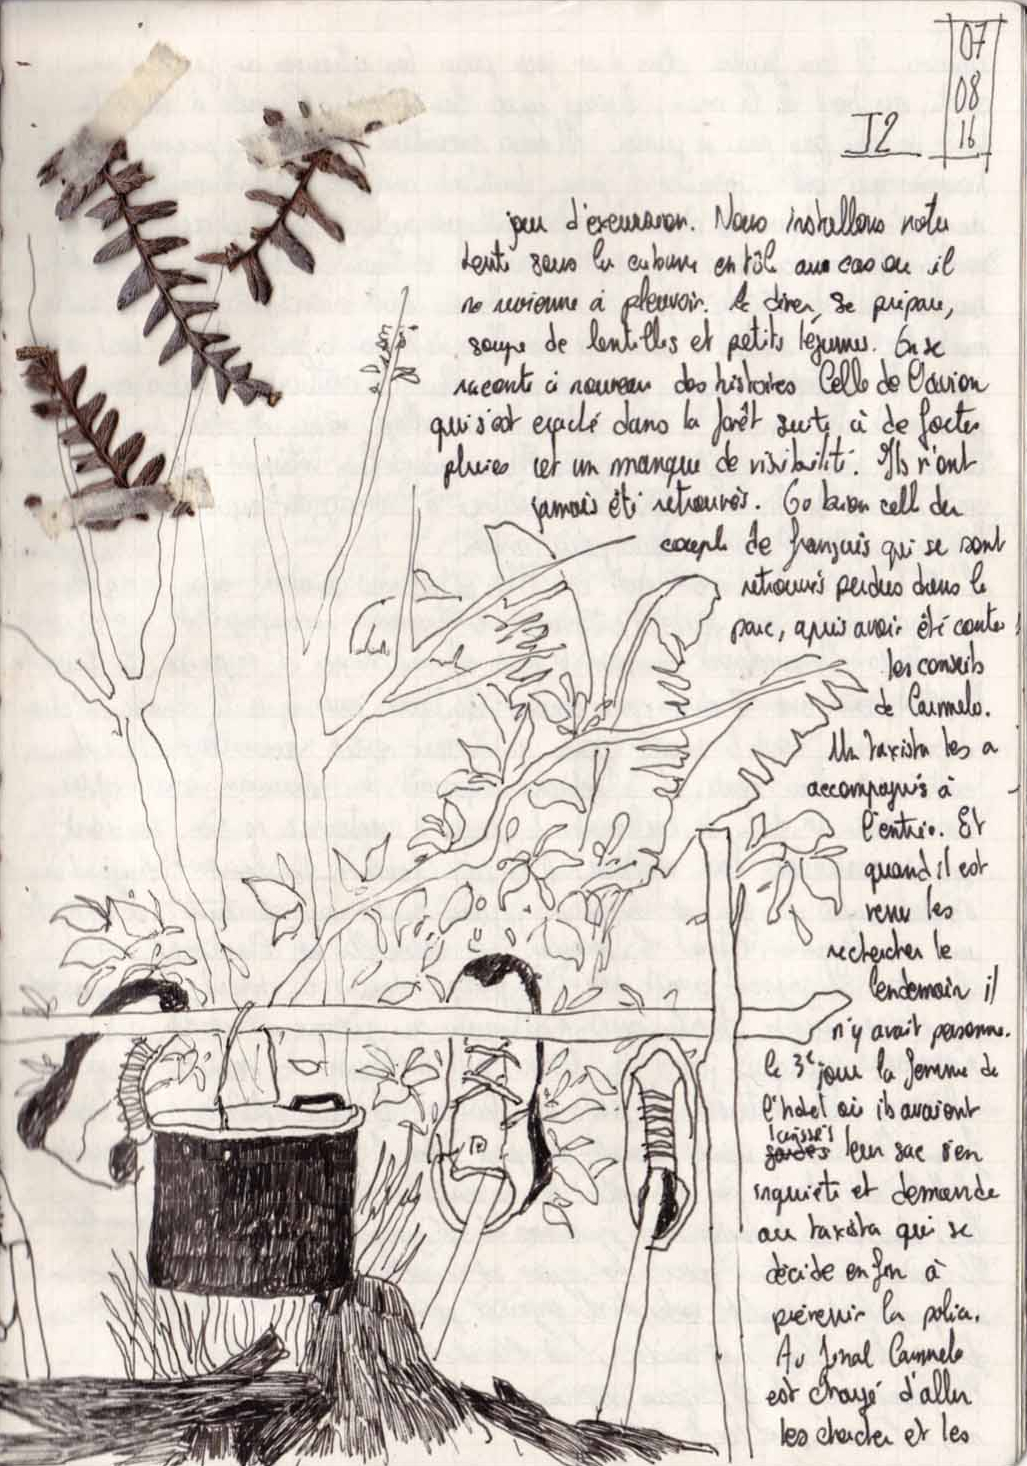 07
08
16
J2
jour d'excursion. Nous installons notre
tente sous la cabane en tôle au cas où il
re vienne à pleuvoir. Le diner, se prépare,
soupe de lentilles et petits légumes. On se
raconte à nouveau des histoires Celle de l'avion
qui s'est craché dans la forêt suite à de fortes
pluies et un manque de visibilité. Ils n'ont
jamais été retrouvés. Ou bien celle du
couple de français qui se sont
retrouvés perdus dans le
parc, après avoir été contre
les conseils
de Carmelo.
Un taxista les a
accompagnés à
l'entrée. Et
quand il est
venu les
rechercher le
lendemain il
n'y avait personne.
le 3e jour la femme de
l'hotel où ils avaient
laissés
leur sac s'en
inquiète et demande
au taxista qui se
décide enfin à
prévenir la police.
Au final Carmelo
est chargé d'aller
les chercher et les